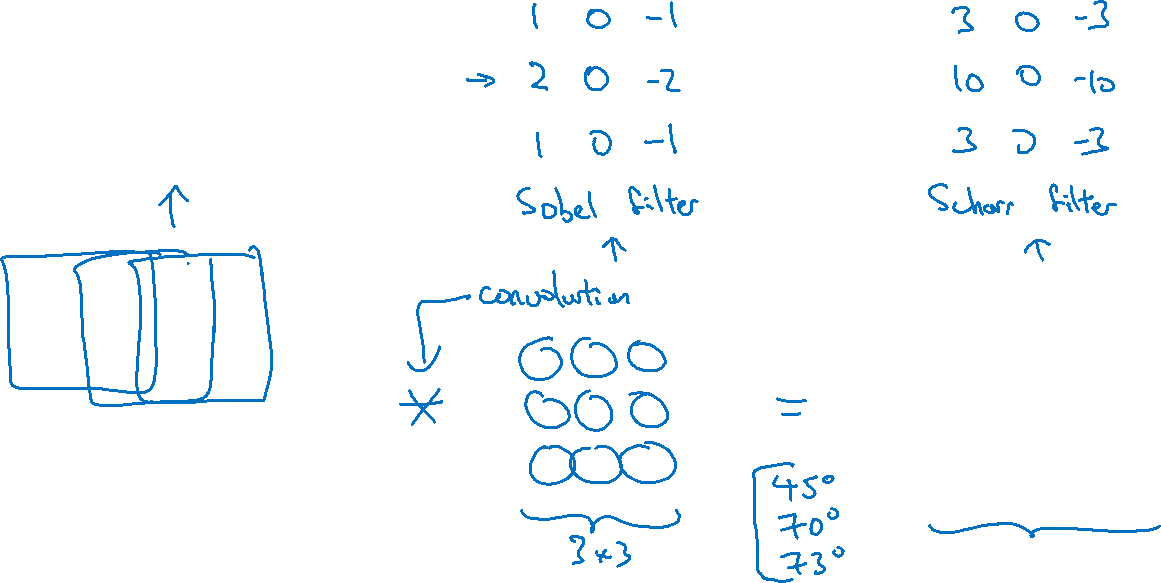 1 0 -1
→ 2 0 -2
1 0 -1
Sobel filter
3 0 -3
10 0 -10
3 0 -3
Scharr filter
convolution
*
=
3 × 3
45°
70°
73°